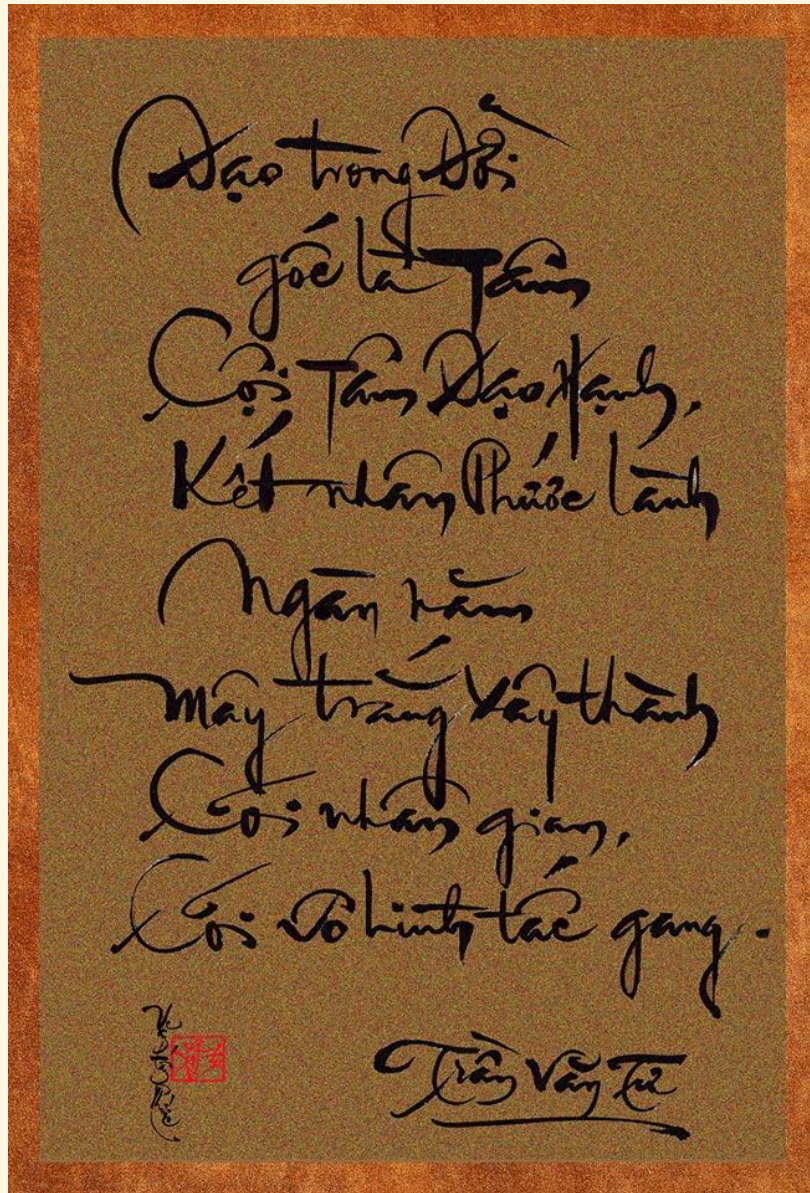 Đạo trong Đời
gốc là Tâm
Cội Tâm Đạo Hạnh,
Kết nhân Phước lành
Ngàn năm
mây trắng xây thành
Cõi nhân gian,
Cõi vô hình tấc gang.
Trần Văn Từ